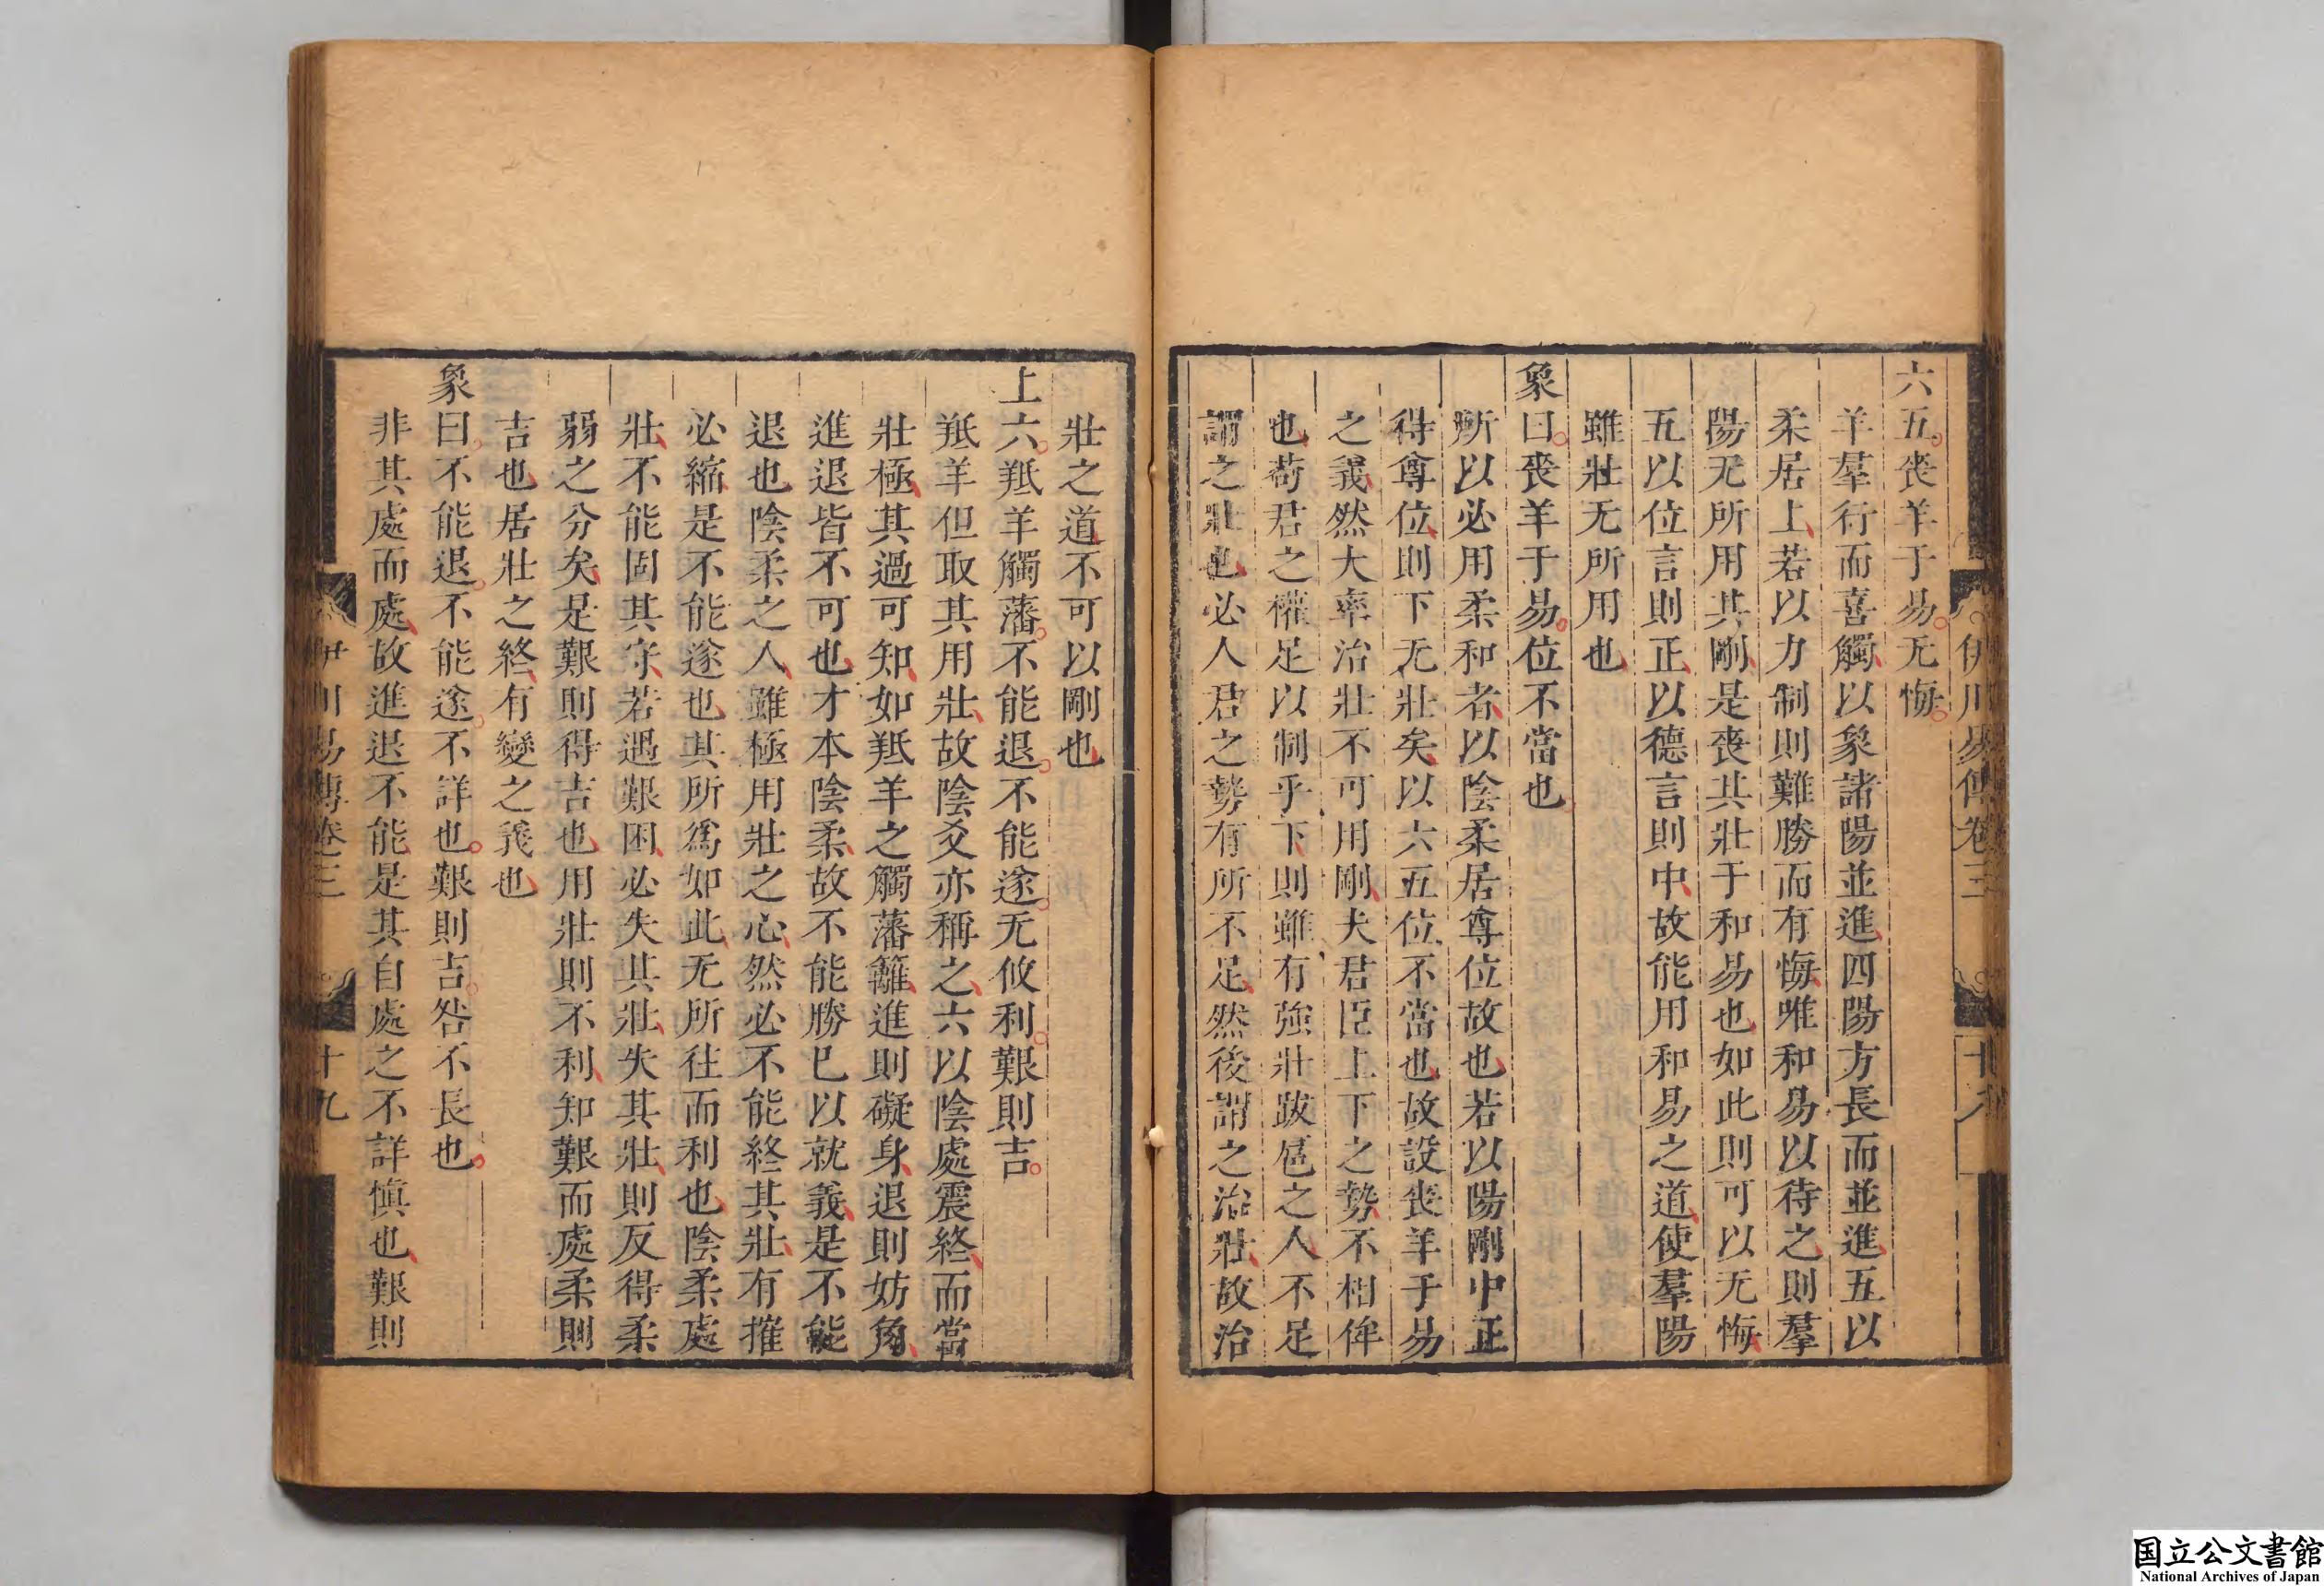 六五喪羊于易无悔
羊羣行而喜觸以象諸陽並進四陽方長而並進五以
柔居上若以力制則難勝而有悔唯和易以待之則羣
陽无所用其剛是喪其壯于和易也如此則可以无悔
五以位言則正以德言則中故能用和易之道使羣陽
雖壯无所用也
象曰喪羊于易位不當也
所以必用柔和者以陰柔居尊位故也若以陽剛中正
得尊位則下无壯矣以六五位不當也故設喪羊于易
之義然大率治壯不可用剛夫君臣上下之勢不相侔
也苟君之權足以制乎下則雖有強壯跋扈之人不足
謂之壯也必人君之勢有所不足然後謂之治壯故治
伊川易傳卷三
十八
壯之道不可以剛也
上六羝羊觸藩不能退不能遂无攸利艱則吉
羝羊但取其用壯故陰爻亦稱之六以陰處震終而當
壯極其過可知如羝羊之觸藩籬進則礙身退則妨角
進退皆不可也才本陰柔故不能勝已以就義是不能
退也陰柔之人雖極用壯之心然必不能終其壯有摧
必縮是不能遂也其所爲如此无所往而利也陰柔處
壯不能固其守若遇艱困必失其壯失其壯則反得柔
弱之分矣是艱則得吉也用壯則不利知艱而處柔則
吉也居壯之終有變之義也
象曰不能退不能遂不詳也艱則吉咎不長也
非其處而處故進退不能是其自處之不詳愼也艱則
伊川易傳卷三
十九
国立公文書館
National Archives of Japan